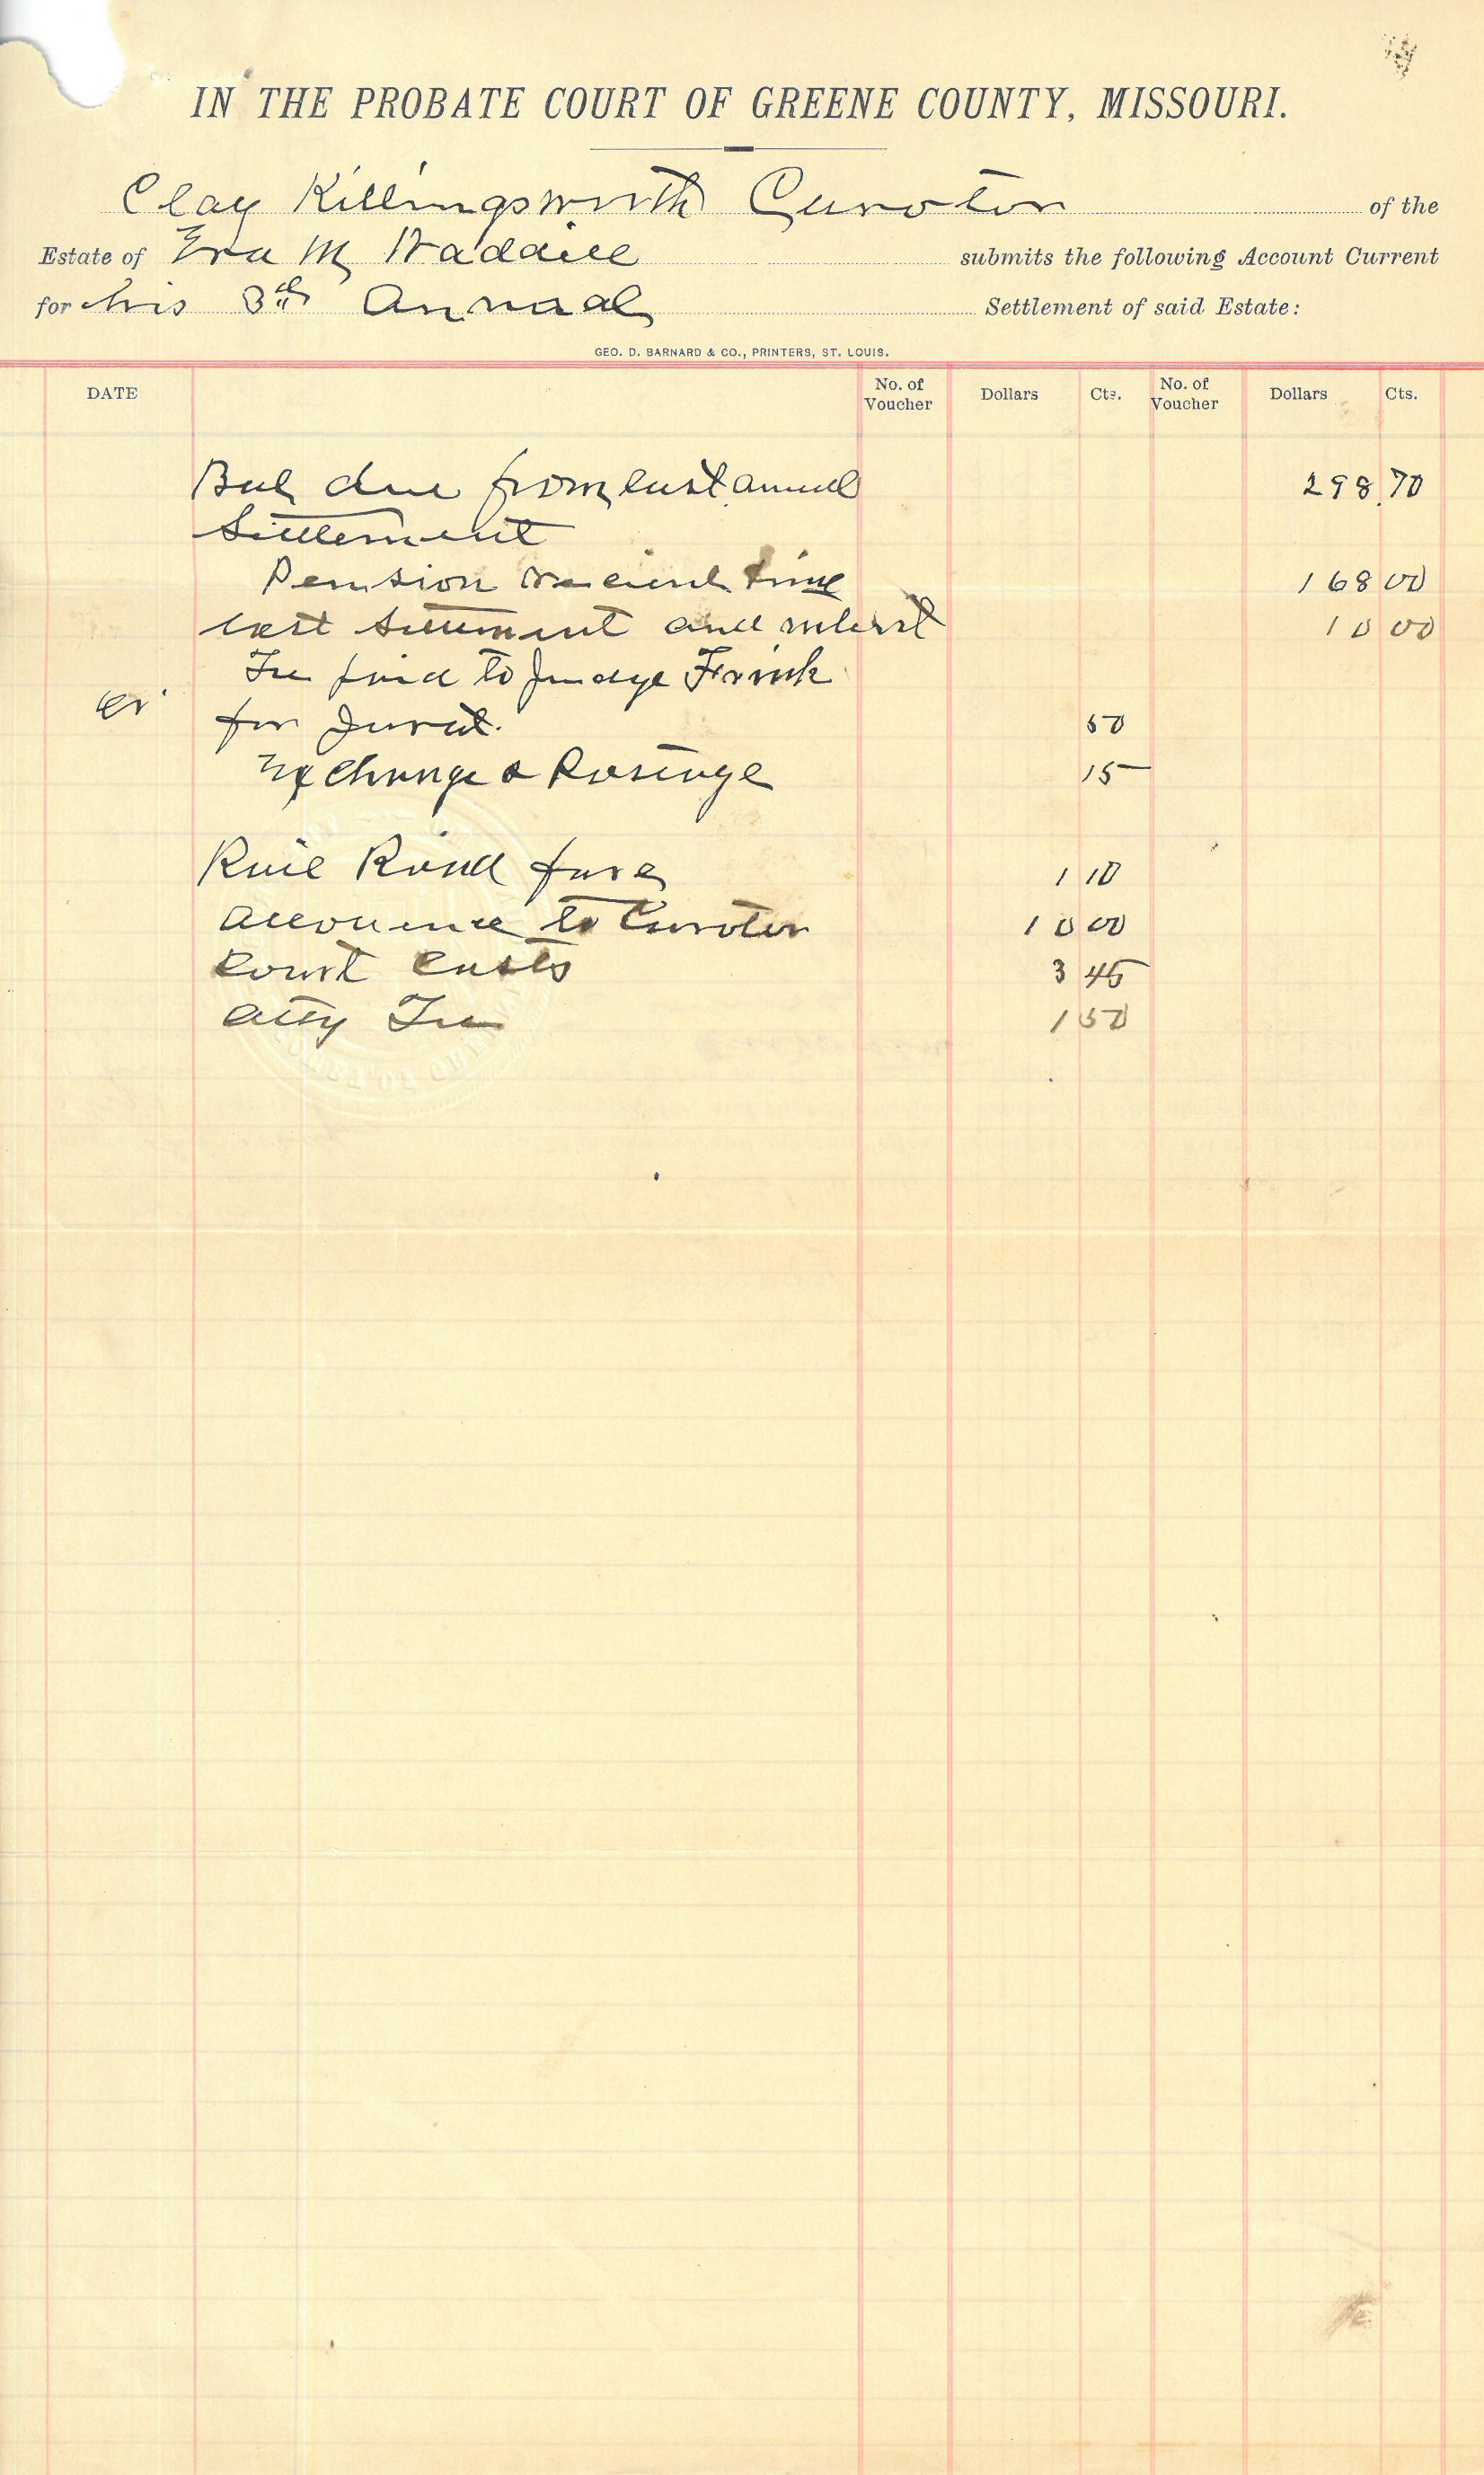 IN THE PROBATE COURT OF GREENE COUNTY, MISSOURI.
Clay Killingsworth Curator of the
Estate of Eva M Waddill submits the following Account Current
for his 3rd Annual Settlement of said Estate:
GEO. D. BARNARD & CO., PRINTERS, ST. LOUIS.
DATE No. of Voucher Dollars Cts. No. of Voucher Dollars Cts.
Bal due from last annual 298.70
Settlement
Pension received time 168 00
last settlement and interest 10 00
Fee paid to Judge Frink
Cr for Jurat. 50
Exchange & Postage 15
Rail Road fare 1 10
Allowance to Curator 10 00
Court Costs 3 45
Atty Fee 1 50